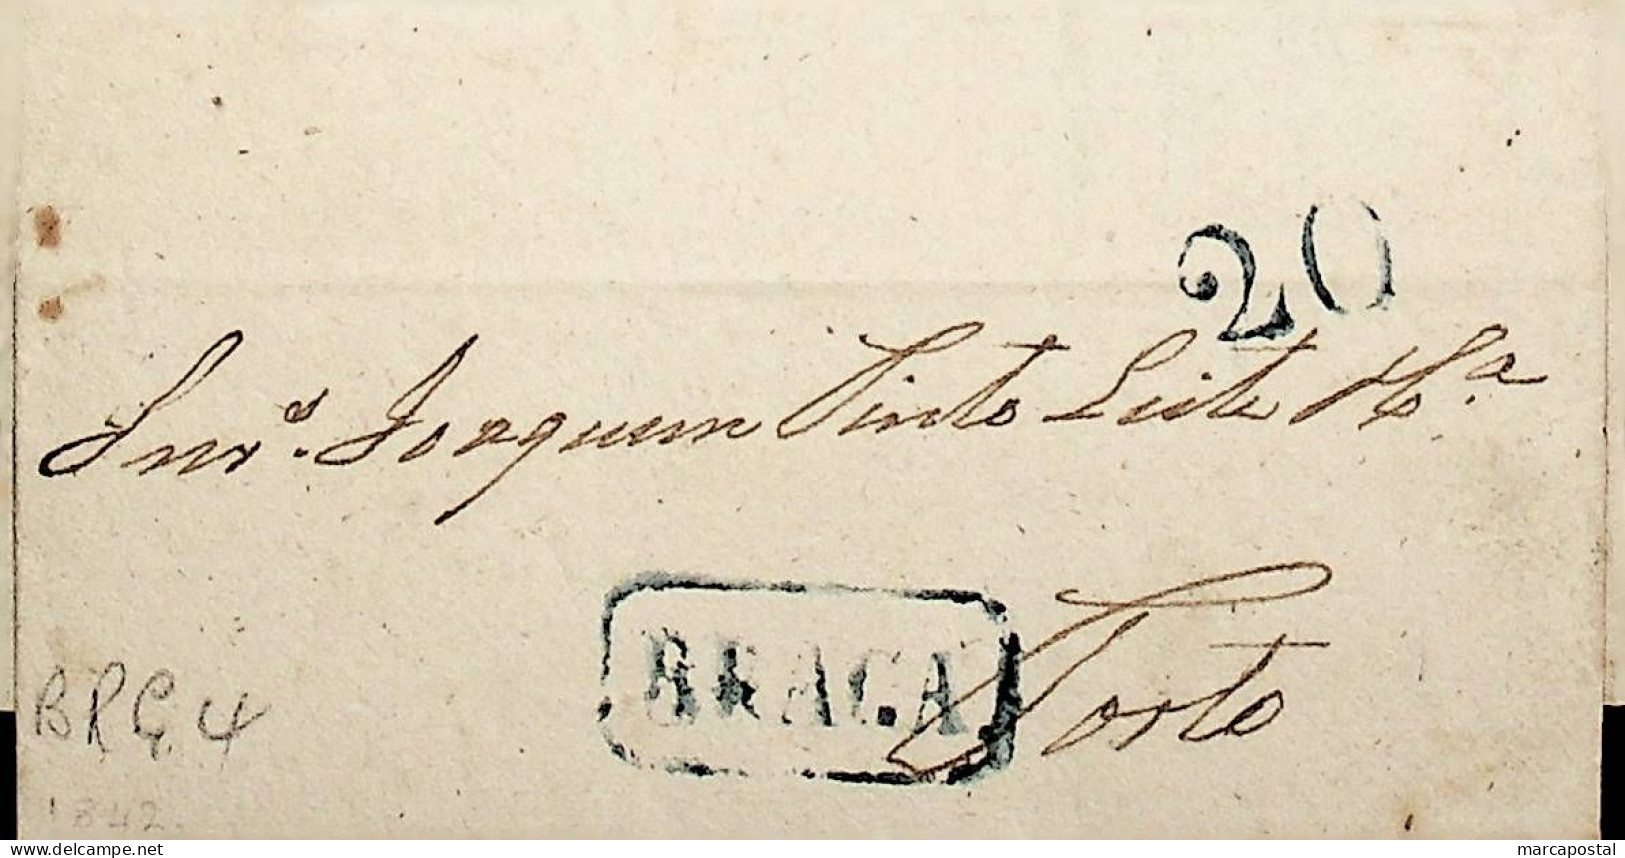 20
Snr.s Joaquim Pinto Leite & C.a
BRAGA
Porto
BRG 4
1842
delcampe.net
marcapostal